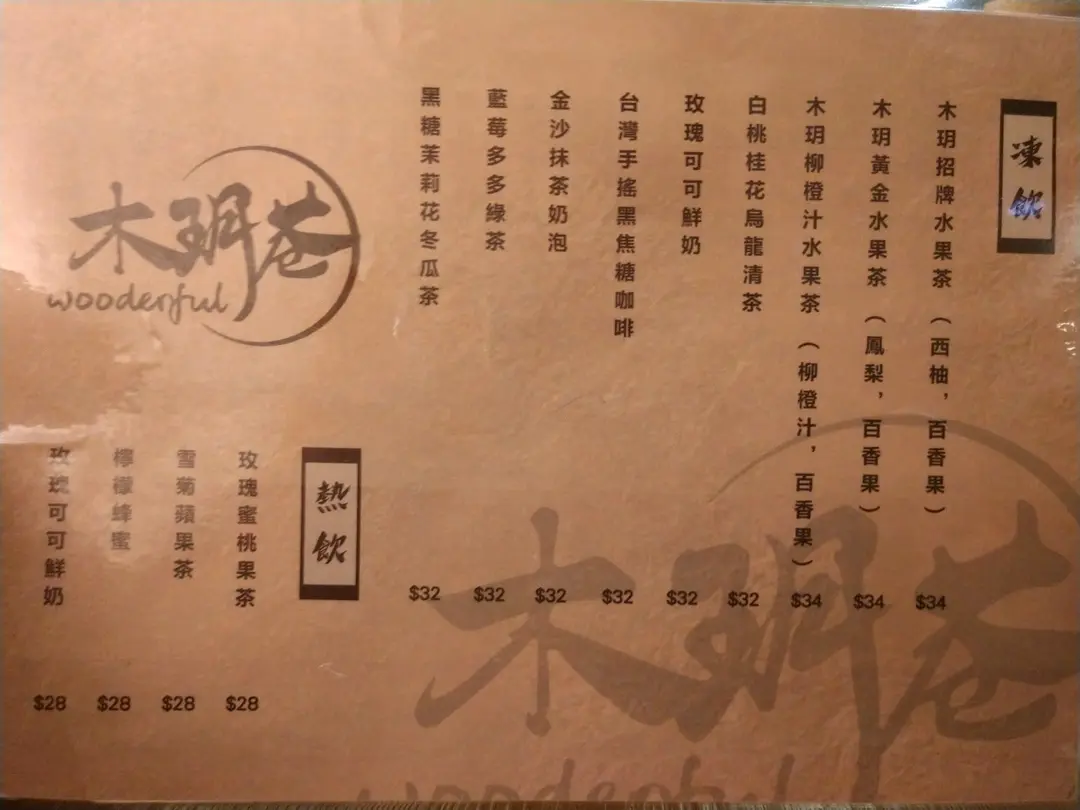 凍飲
木玥招牌水果茶（西柚，百香果） $34
木玥黃金水果茶（鳳梨，百香果） $34
木玥柳橙汁水果茶（柳橙汁，百香果） $34
白桃桂花烏龍清茶 $32
玫瑰可可鮮奶 $32
台灣手搖黑焦糖咖啡 $32
金沙抹茶奶泡 $32
藍莓多多綠茶 $32
黑糖茉莉花冬瓜茶 $32
木玥巷
wooderful
熱飲
玫瑰蜜桃果茶 $28
雪菊蘋果茶 $28
檸檬蜂蜜 $28
玫瑰可可鮮奶 $28
木玥巷
wooderful